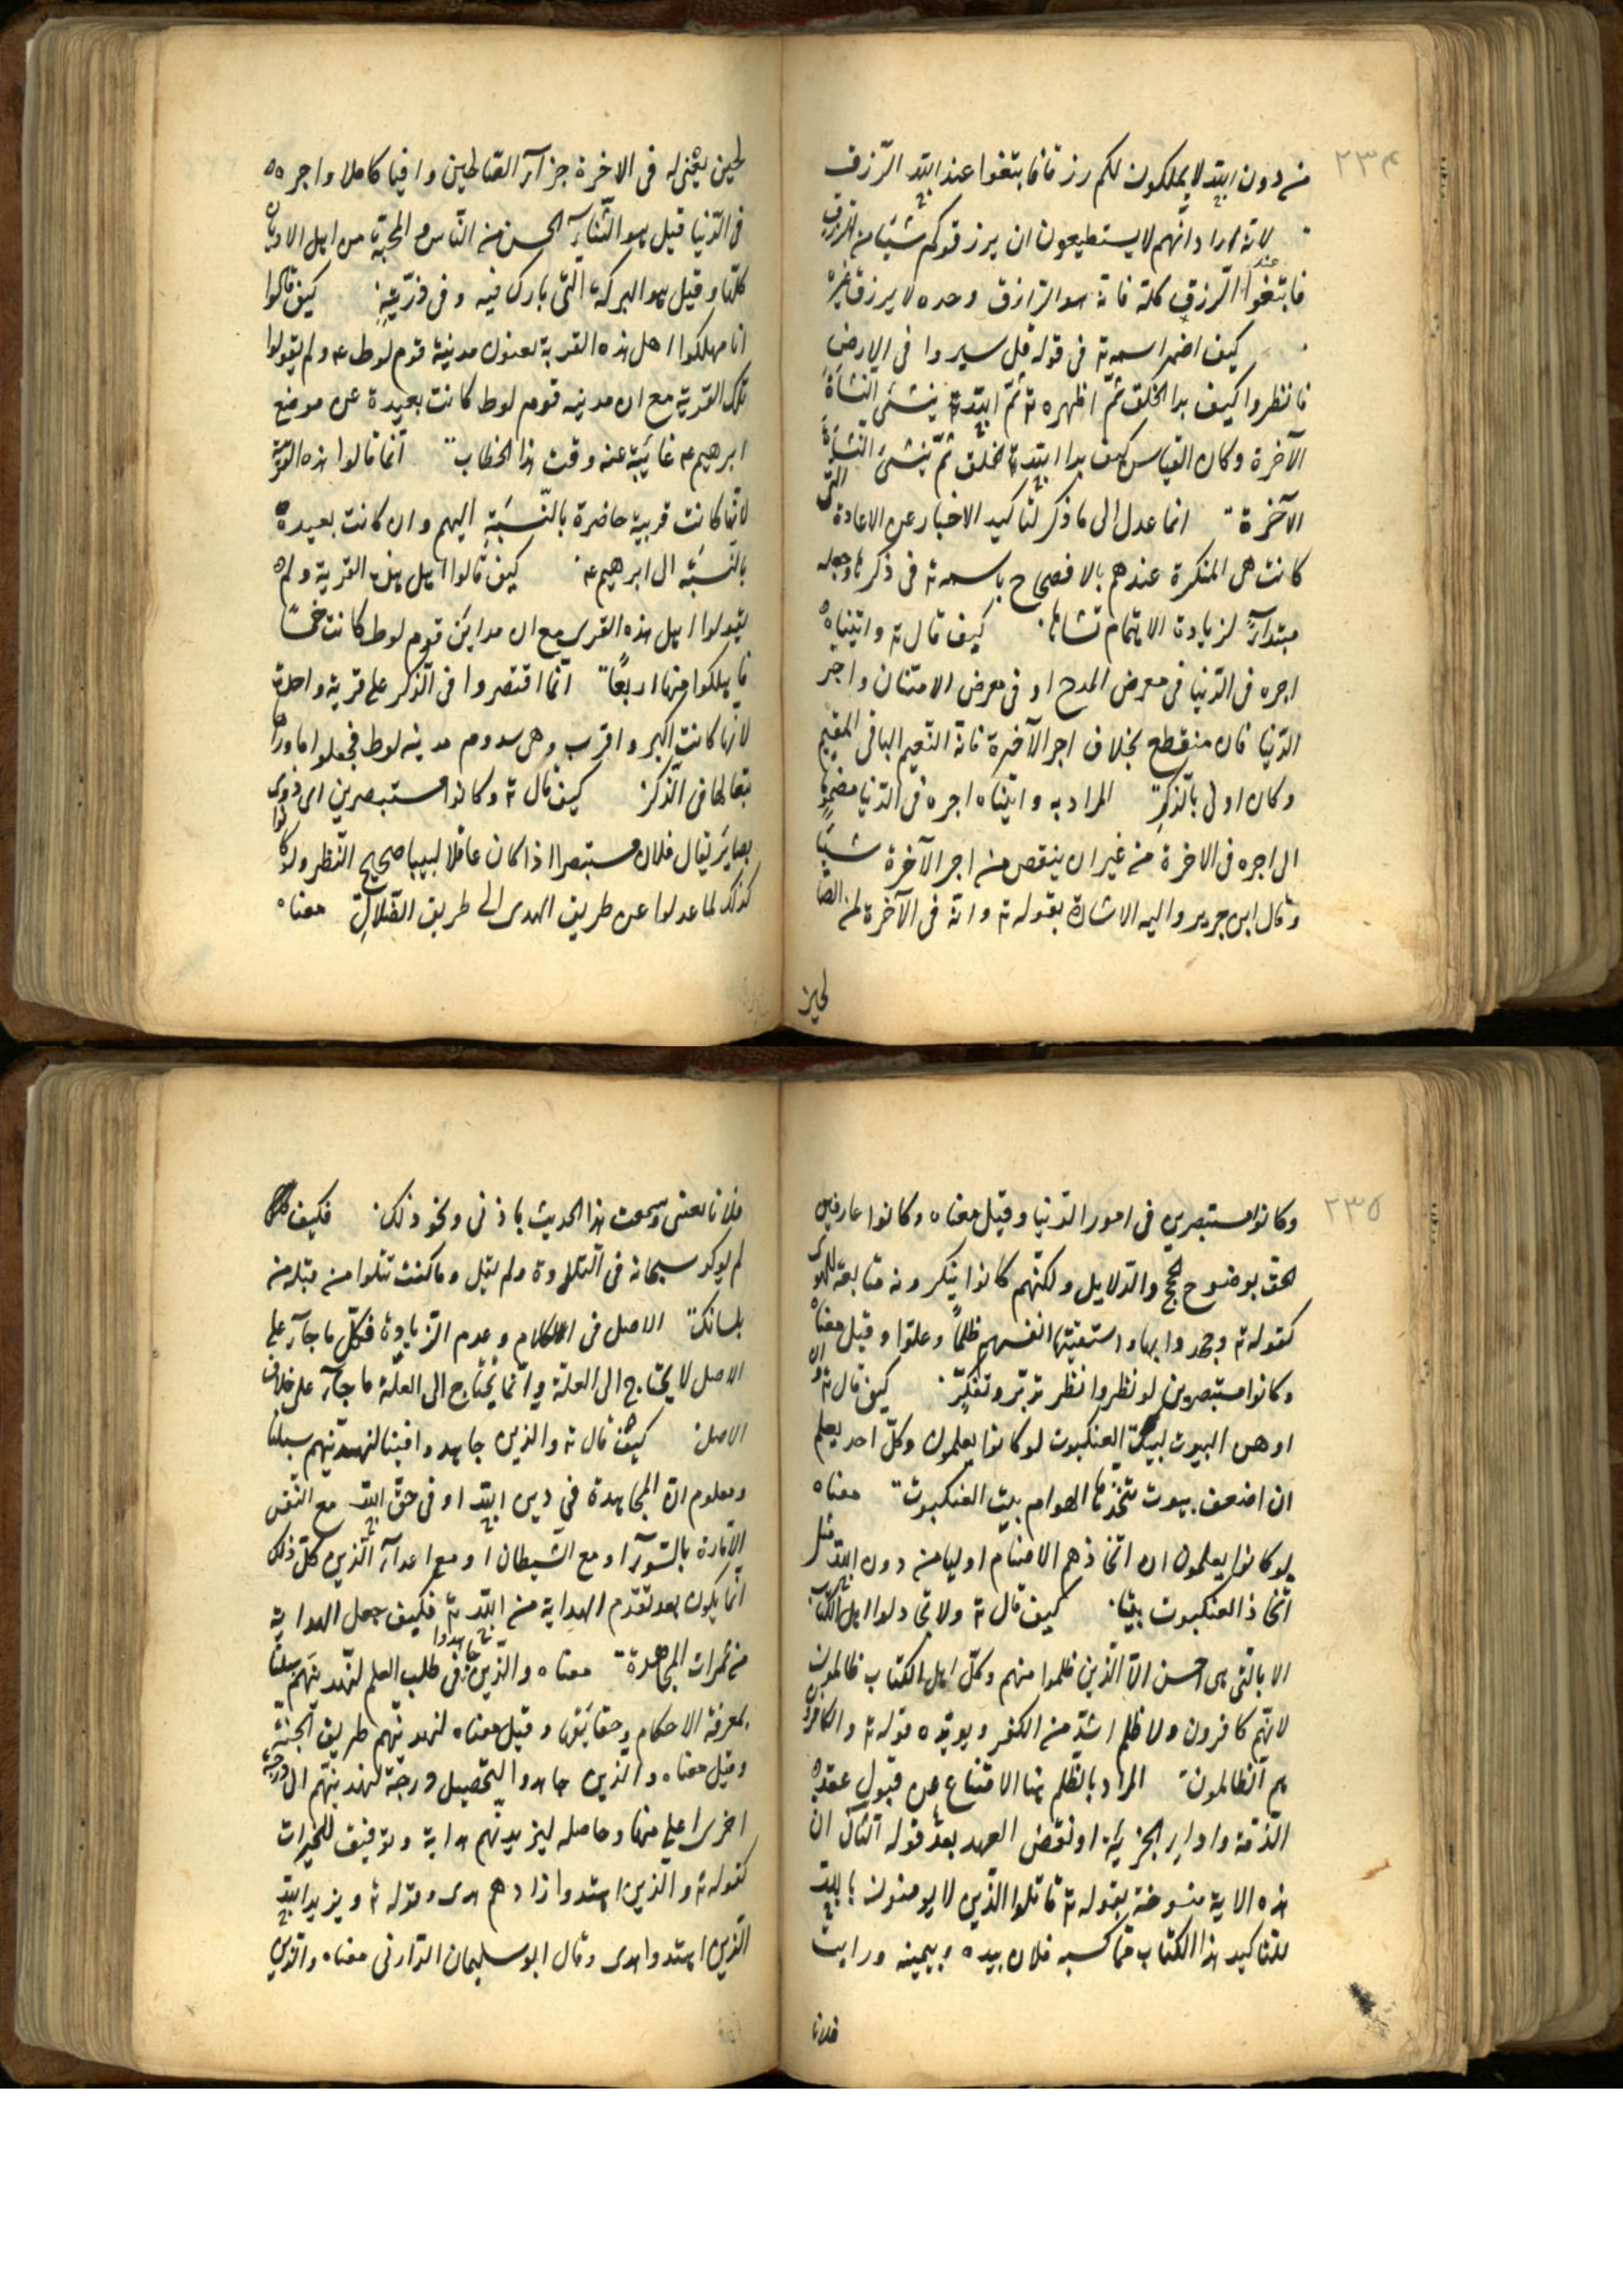 ٢٣٤
من دون الله لا يملكون لكم رزقا فابتغوا عند الله الرّزق
لانه اراد انّهم لا يستطيعون ان يرزقوكم شيئا من الرزق
فابتغوا عند الرّزق كلّه فانه هو الرّازق وحده لا يرزق غيره
كيف اضمر اسمه تع فى قوله قل سيروا فى الارض
فانظروا كيف بدا الخلق ثمّ اظهره تع ثمّ الله تع ينشئ النشأة
الآخرة وكان القياس كيف بدا الله تع الخلق ثمّ ينشئ النشأة
الآخرة انما عدل الى ما ذكر لتاكيد الاخبار عن الاعادة التى
كانت هى المنكرة عندهم بالافصاح باسمه تع فى ذكرها وجعله
مبتدأ لزيادة الاهتمام بشانها كيف قال تع واتيناه
اجره فى الدّنيا فى معرض المدح او فى معرض الامتنان واجر
الدّنيا فان منقطع بخلاف اجر الآخرة فانه النّعيم الباقى المقيم
وكان اولى بالذّكرِ المراد به واتيناه اجره فى الدّنيا مضموما
الى اجره فى الاخرة من غير ان ينقص من اجر الآخرة شيئا
وقال ابن جرير واليه الاشارة بقوله تع وانّه فى الآخرة لمن الصّا
لحين
لحين يعنى له فى الاخرة جزآء الصّالحين وافيا كاملا واجره
فى الدّنيا قيل هو الثّناء الحسن من النّاس والمحبّة من اهل الاديان
كلّها وقيل هو البركة التى بارك فيه وفى ذرّيّته كيف قالوا
انا مهلكوا اهل هذه القرية يعنون مدينة قوم لوط عم ولم يقولوا
تلك القرية مع ان مدينه قوم لوط كانت بعيدة عن موضع
ابرهيم عم غائبة عنه وقت هذا الخطاب انّما قالوا هذه القرية
لانّها كانت قريبة حاضرة بالنّسبَةِ اليهم وان كانت بعيدة
بالنّسبَة الى ابرهيم عم كيف قالوا اهل هذه القرية ولم
يقولوا اهل هذه القرى مع ان مداين قوم لوط كانت خمسًا
فاهلكوا منها اربعًا انّما اقتصروا فى الذّكر على قرية واحدة
لانّها كانت اكبر واقرب وهى سدوم مدينه لوط فجعلوا ماوراها
تبعا لها فى الذّكر كيف قال تع وكانوا مستبصرين اى ذوى
بصاير يقال فلان مستبصر اذا كان عاقلا لبيبا صحيح النّظر ولو كانوا
كذلك لما عدلوا عن طريق الهدى الى طريق الضّلالِ معناه
٢٣٥
وكانوا مستبصرين فى امور الدّنيا وقيل معناه وكانوا عارفين
الحق بوضوح الحجج والدّلايل ولكنّهم كانوا ينكرونه متابعة للهوى
كقوله تع وجحدوا بها واستيقنتها انفسهم ظلمًا وعلوّا وقيل معناه
وكانوا مستبصرين لو نظروا نظر تدبّر وتفكّر كيف قال تع وان
اوهن البيوت لبيت العنكبوت لو كانوا يعلمون وكلّ احد يعلم
ان اضعف بيوت تتخذها الهوام بيت العنكبوت معناه
لو كانوا يعلمون ان اتخاذهم الاصنام اوليا من دون الله مثل
اتّخاذ العنكبوت بيتا كيف قال تع ولا تجادلوا اهل الكتاب
الا بالتى هى احسن الّا الّذين ظلموا منهم وكلّ اهل الكتاب ظالمون
لانّهم كافرون ولا ظلم اشدّ من الكفر ويويّده قوله تع والكافرون
هم الظالمون المراد بالظّلم هنا الامتناع عن قبول عقد
الذّمّة واداء الجزية او نقض العهد بعد قوله الثانى ان
هذه الاية منسوخة بقوله تع قاتلوا الّذين لا يومنون بالله
للتاكيد هذا الكتاب ممّا كسبه فلان بيده وبيمينه ورايت
فلانا
فلانا بعينى وسمعت هذا الحديث باذنى ونحو ذلك فكيف
لم يوكد سبحانه فى التلاوة ولم يقل وما كنت تتلوا من قبله من
بلسانك الاصل فى الكلام وعدم الزّيادة فكلّ ما جآء على
الاصل لا يحتاج الى العلّة وانّما يحتاج الى العلّة ما جآء على خلاف
الاصل كيف قال تع والذين جاهدوا فينا لنهدينّهم سبلنا
ومعلوم انّ المجاهدة فى دين الله او فى حق الله مع النّفس
الامّارة بالسّوء او مع الشّيطان او مع اعدآء الّذين كلّ ذلك
انّما يكون بعد تقدّم الهداية من الله تع فكيف جعل الهداية
من ثمرات المجاهدة معناه والّذين جاهدوا فى طلب العلم لنهدينّهم سبلنا
بمعرفة الاحكام وحقايقها وقيل معناه لنهدينّهم طريق الجنّة
وقيل معناه والّذين جاهدوا لتحصيل درجة لنهدينّهم الى درجة
اخرى اعلى منها وحاصله لنزيدنّهم هداية وتوفيق للخيرات
كقوله تع والّذين اهتدوا زادهم هدى وقوله تع ويزيد الله
الّذين اهتدوا هدى وقال ابو سليمان الدّارنى معناه والّذين